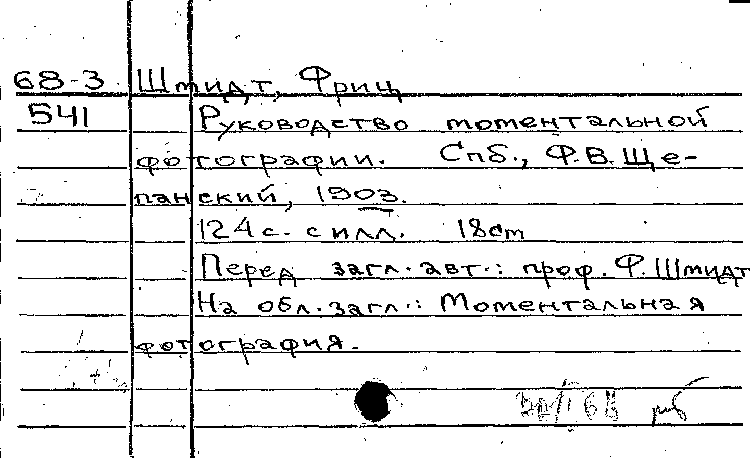 68-3 Шмидт, Фриц
541 Руководство моментальной
фотографии. Спб., Ф.В. Ще-
панский, 1903.
124 с. с илл. 18 cm
Перед загл. авт.: проф. Ф. Шмидт
На обл. загл.: Моментальная
фотография.